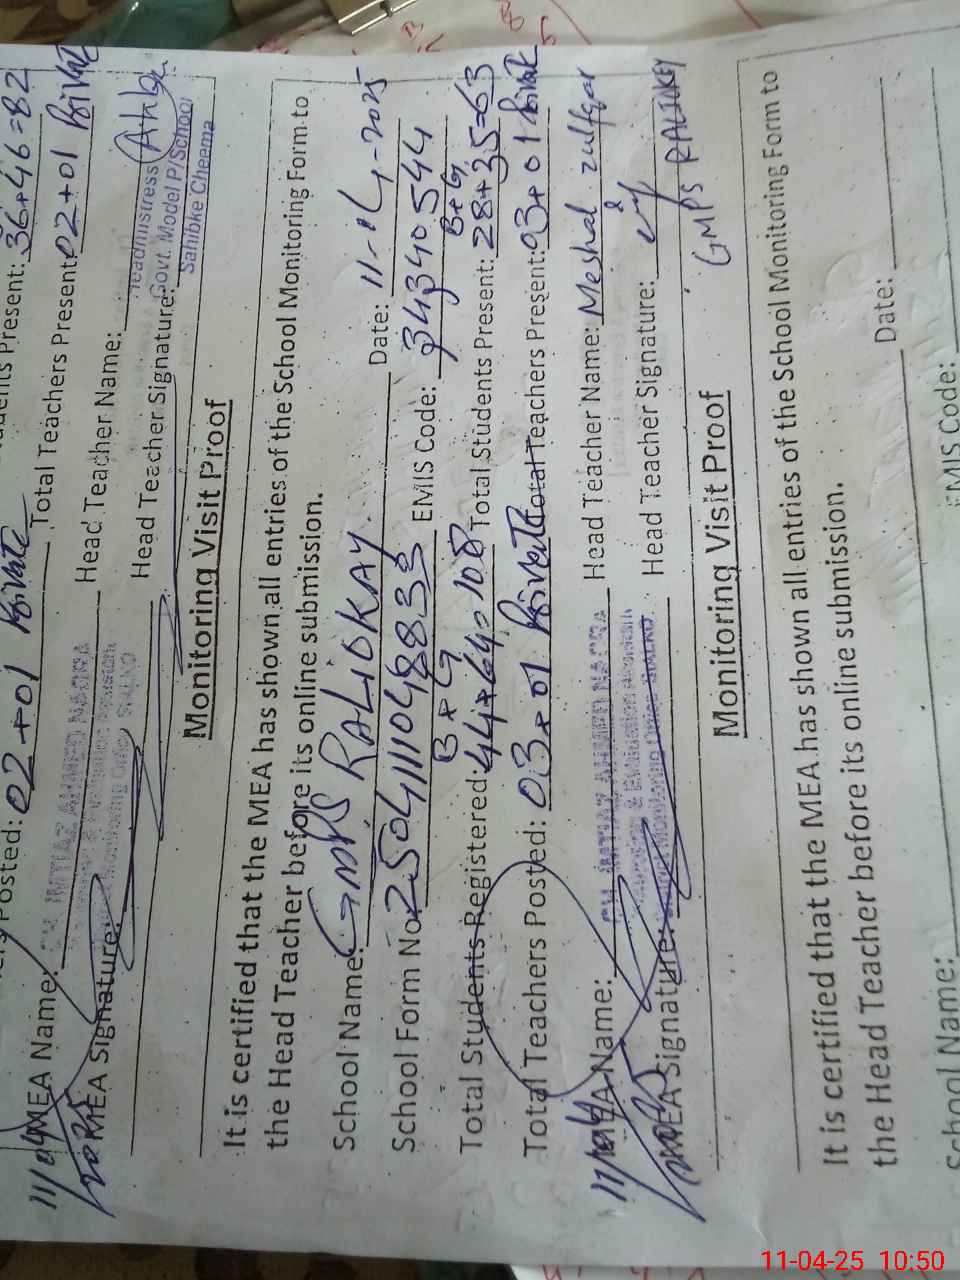 Students Present: 36+46=82
Posted: 02+01 Private Total Teachers Present: 02+01 Private
MEA Name: Head Teacher Name:
Headmistress
MEA Signature: Head Teacher Signature:
Govt. Model P/School
Sahibke Cheema
Monitoring Visit Proof
It is certified that the MEA has shown all entries of the School Monitoring Form to
the Head Teacher before its online submission.
School Name: GMPS RALIOKAY Date: 11-04-2025
School Form No. EMIS Code: 34340544
B+G B+G
Total Students Registered: 44+64=108 Total Students Present: 28+35=63
Total Teachers Posted: 03+01 Private Total Teachers Present: 03+01 Private
MEA Name: IMTIAZ AHMED Head Teacher Name: Meshal zulfqar
MEA Signature: Head Teacher Signature:
GMPS RALIOKEY
Monitoring Visit Proof
It is certified that the MEA has shown all entries of the School Monitoring Form to
the Head Teacher before its online submission.
School Name: Date:
EMIS Code:
11-04-25 10:50